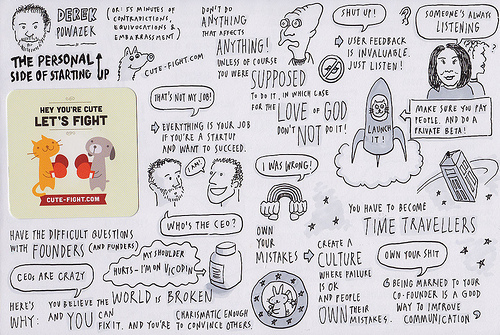 DEREK
POWAZEK
(OR: 55 MINUTES OF
CONTRADICTIONS,
EQUIVOCATIONS &
EMBARRASSMENT)
THE PERSONAL
SIDE OF STARTING UP
CUTE-FIGHT.COM
HEY YOU'RE CUTE
LET'S FIGHT
CUTE-FIGHT.COM
DON'T DO
ANYTHING
THAT AFFECTS
ANYTHING!
UNLESS OF COURSE
YOU WERE SUPPOSED
TO DO IT, IN WHICH CASE
FOR THE LOVE OF GOD
DON'T NOT DO IT!
SHUT UP!
USER FEEDBACK
IS INVALUABLE.
JUST LISTEN!
SOMEONE'S ALWAYS
LISTENING
?
LAUNCH
IT!
MAKE SURE YOU PAY
PEOPLE. AND DO A
PRIVATE BETA!
THAT'S NOT MY JOB!
EVERYTHING IS YOUR JOB
IF YOU'RE A STARTUP
AND WANT TO SUCCEED.
I AM!
WHO'S THE CEO?
I WAS WRONG!
OWN
YOUR
MISTAKES
CREATE A
CULTURE
WHERE FAILURE
IS OK
AND PEOPLE
OWN THEIR
MISTAKES.
YOU HAVE TO BECOME
TIME TRAVELLERS
OWN YOUR SHIT
BEING MARRIED TO YOUR
CO-FOUNDER IS A GOOD
WAY TO IMPROVE
COMMUNICATION
HAVE THE DIFFICULT QUESTIONS
WITH FOUNDERS (AND FUNDERS)
CEOs ARE CRAZY
MY SHOULDER
HURTS - I'M ON VICODIN
HERE'S
WHY:
YOU BELIEVE THE WORLD IS BROKEN
AND YOU CAN
FIX IT. AND YOU'RE
CHARISMATIC ENOUGH
TO CONVINCE OTHERS.